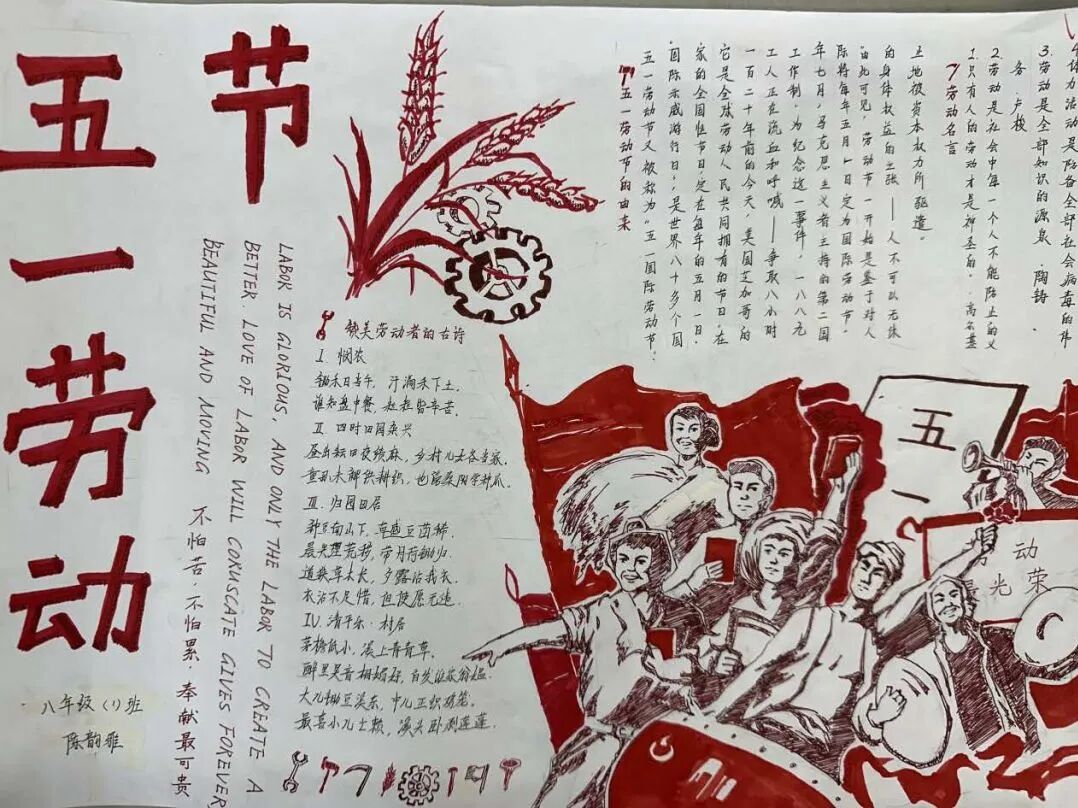 五一劳动
节
LABOR IS GLORIOUS, AND ONLY THE LABOR TO CREATE A
BETTER LOVE OF LABOR WILL CORUSCATE GIVES FOREVER
BEAUTIFUL AND MOVING 不怕苦 不怕累 奉献最可贵
八年级(1)班
陈韵雅
赞美劳动者的古诗
I 悯农
锄禾日当午，汗滴禾下土。
谁知盘中餐，粒粒皆辛苦。
II 四时田园杂兴
昼出耘田夜绩麻，乡村儿女各当家。
童孙未解供耕织，也傍桑阴学种瓜。
III 归园田居
种豆南山下，草盛豆苗稀。
晨兴理荒秽，带月荷锄归。
道狭草木长，夕露沾我衣。
衣沾不足惜，但使愿无违。
IV 清平乐·村居
茅檐低小，溪上青青草。
醉里吴音相媚好，白发谁家翁媪。
大儿锄豆溪东，中儿正织鸡笼。
最喜小儿亡赖，溪头卧剥莲蓬。
五一劳动节的由来
五一劳动节又被称为“五一国际劳动节”
国际示威游行日，是世界八十多个国
家的全国性节日，定在每年的五月一日。
它是全球劳动人民共同拥有的节日。在
一百二十年前的今天，美国芝加哥的
工人正在流血和呼喊——争取八小时
工作制。为纪念这一事件，一八八九
年七月，马克思主义者主持的第二国
际将每年五月一日定为国际劳动节。
由此可见，劳动节一开始是基于对人
的身体权益的主张——人不可以无休
止地被资本权力所驱遣。
劳动名言
1.只有人的劳动才是神圣的。·高尔基
2.劳动是社会中每一个人不能防止的义
务·卢梭
3.劳动是全部知识的源泉·陶铸
体力活动是防备全部社会病毒的伟
五
一
动
光荣